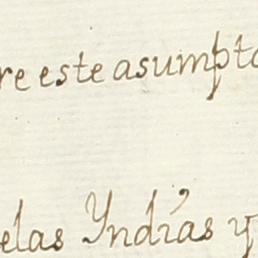 re este asumpto
elas Yndías y